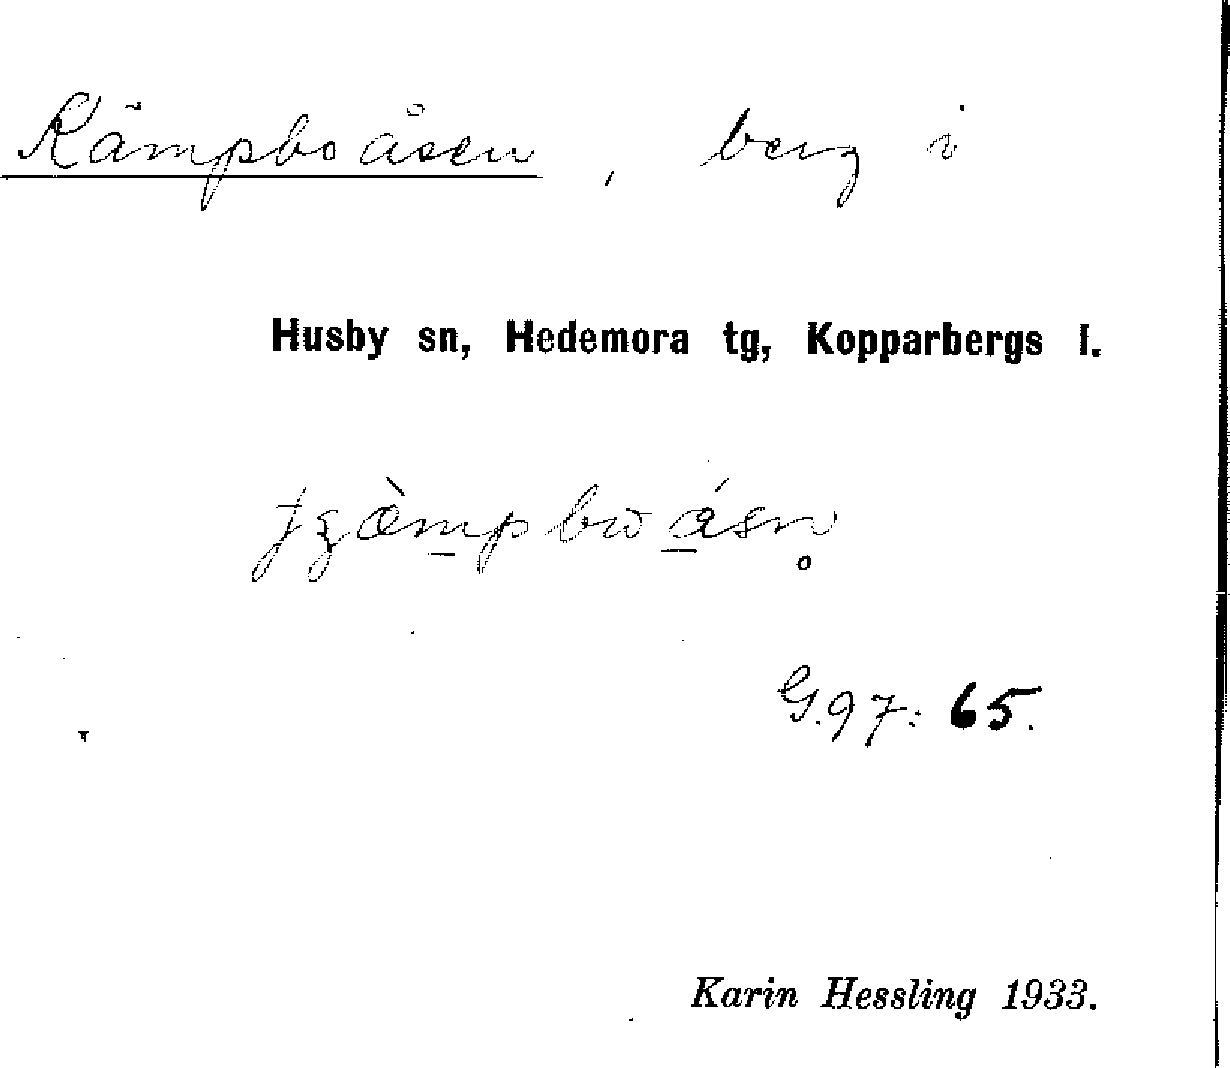 Kämpboåsen, berg i
Husby sn, Hedemora tg, Kopparbergs l.
G.97: 65.
Karin Hessling 1933.